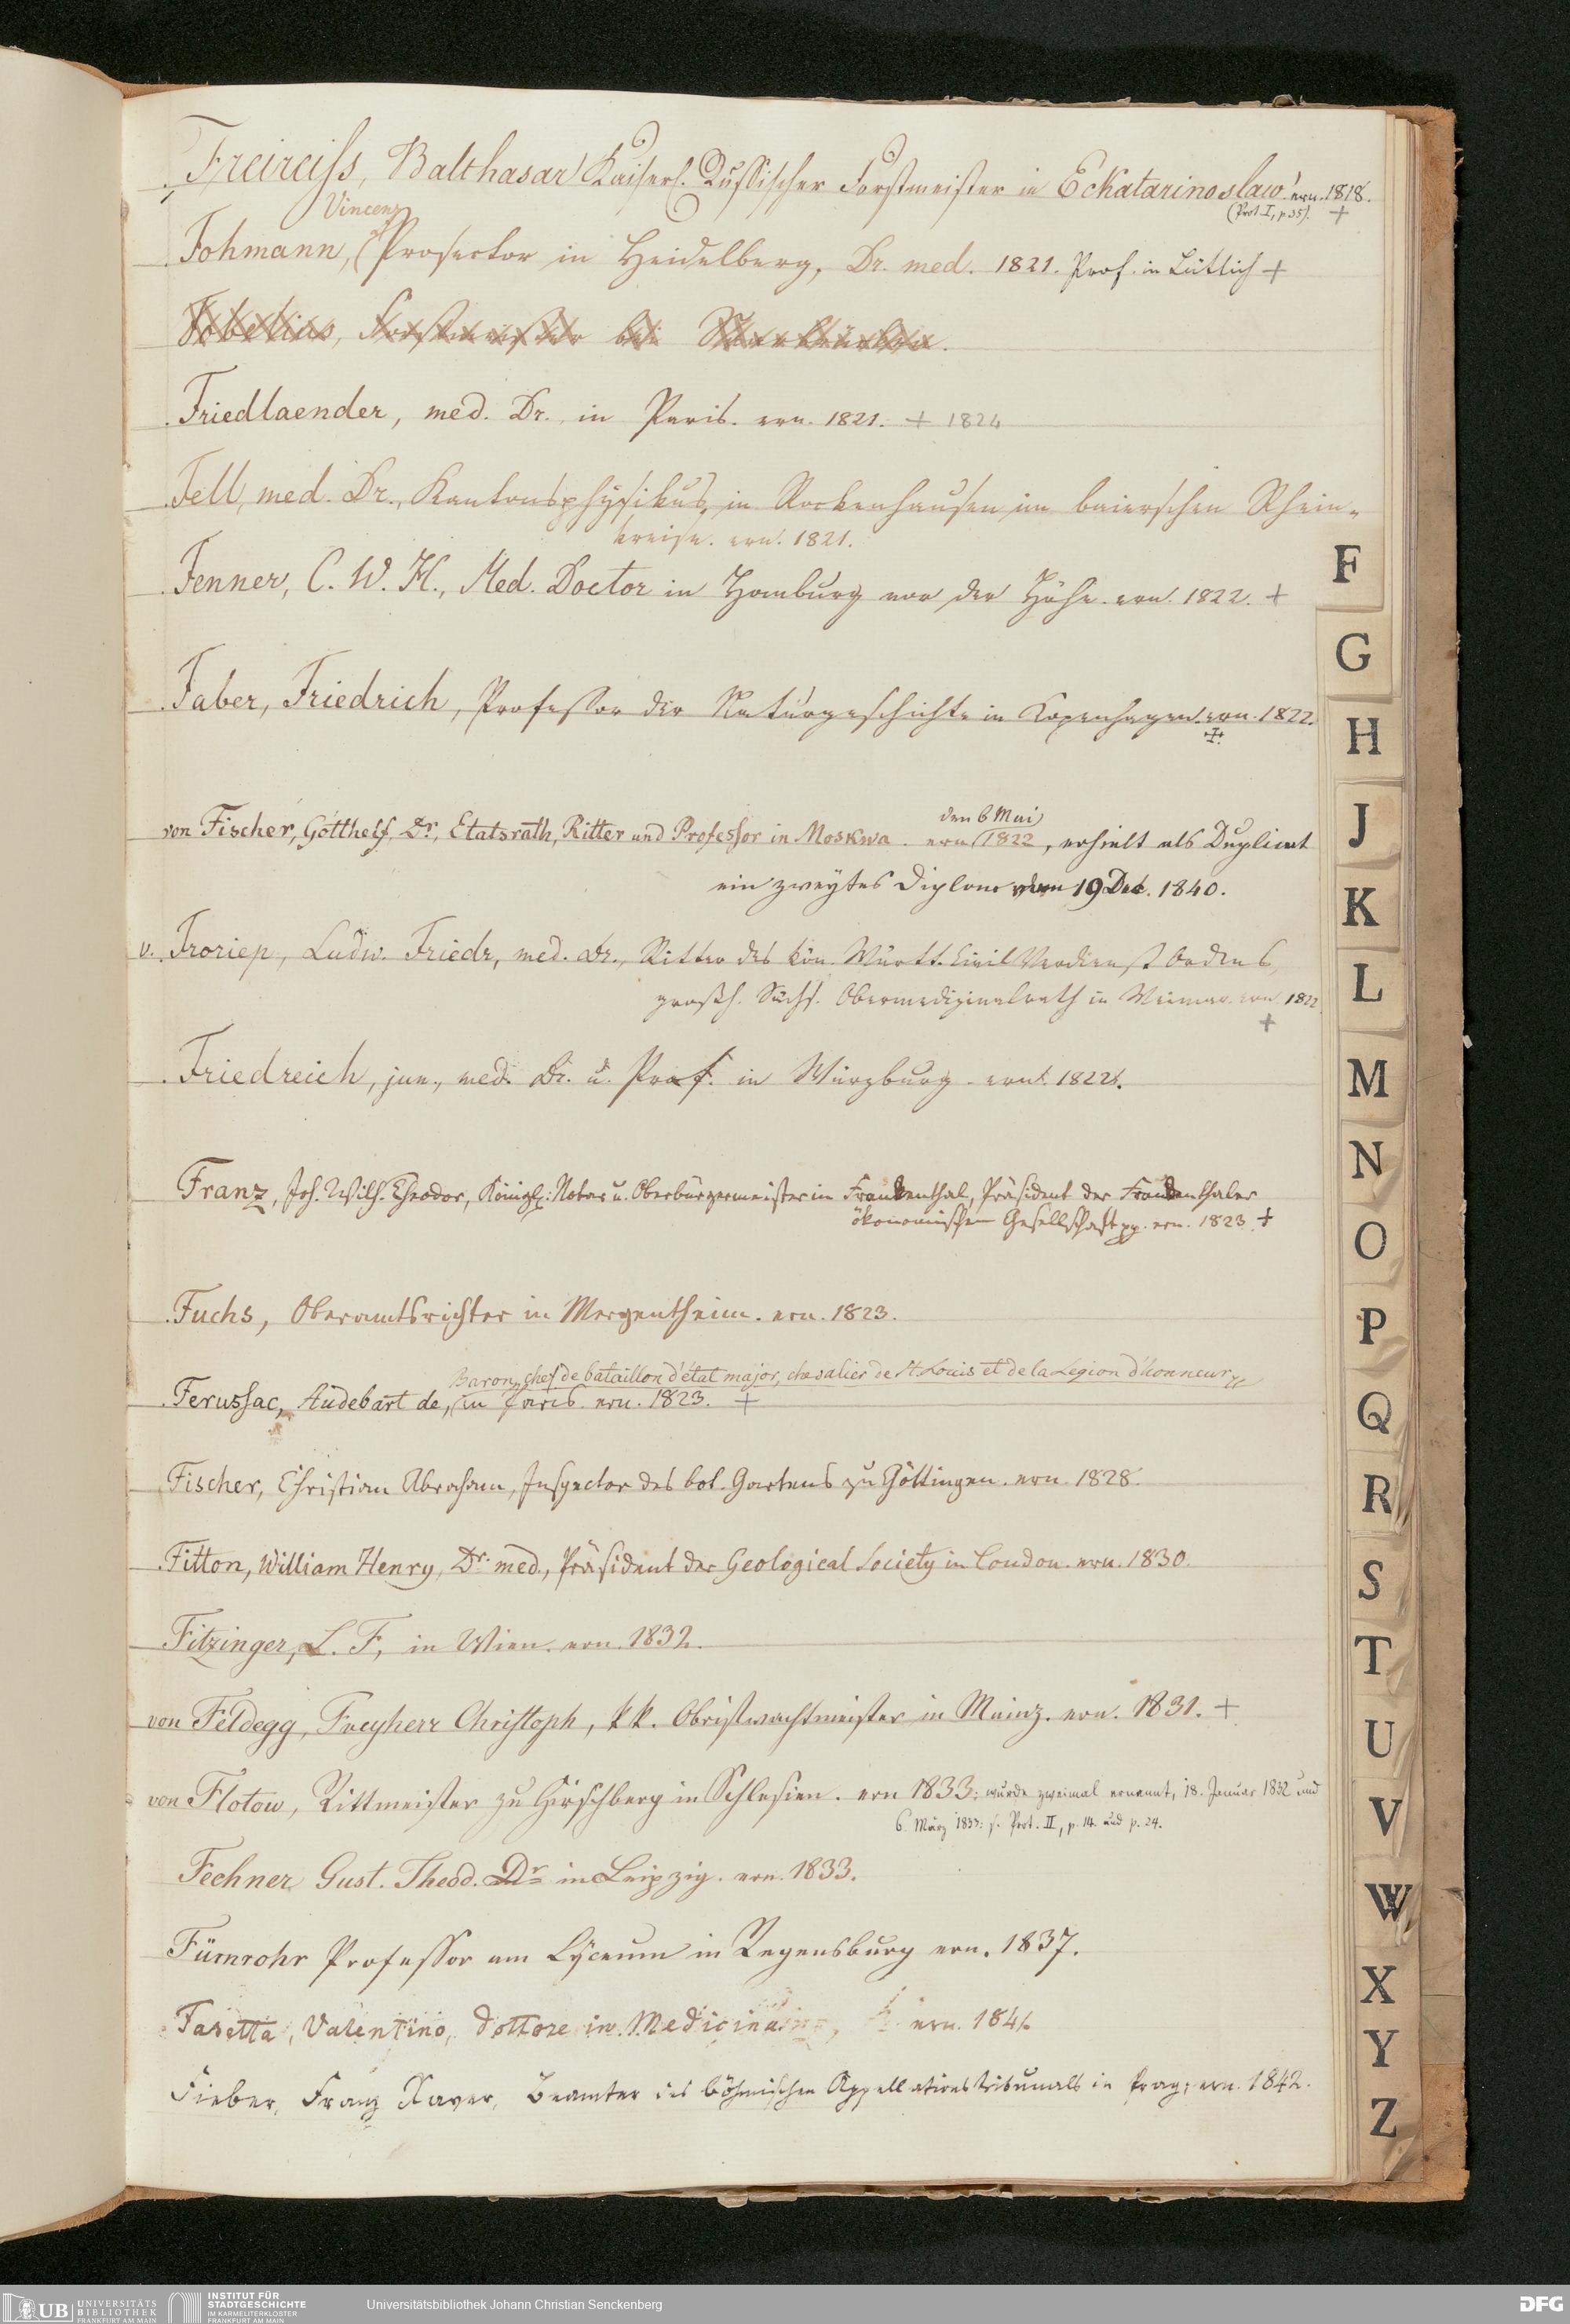 Freireiss, Balthasar Kaiserl. Russischer Forstmeister in Eckatarinoslaw. ern. 1818.
(Prot. I, p. 35). +
Vincenz
Fohmann, Prosector in Heidelberg, Dr. med. 1821. Prof. in Lüttich +
Forstmeister bei
Friedlaender, med. Dr. in Paris. ern. 1821. + 1824
Fell, med. Dr., Kantonsphysikus, in Rockenhausen im baierschen Rhein-
kreise. ern. 1821.
Fenner, C. W. H., Med. Doctor in Homburg vor der Höhe. ern. 1822. +
Faber, Friedrich, Professor der Naturgeschichte in Kopenhagen. ern. 1822.
+
den 6 Mai
von Fischer, Gotthelf, Dr., Etatsrath, Ritter und Professor in Moskwa. ern 1822, erhielt als Duplicat
ein zweytes Diplom vom 19 Dec. 1840.
v. Froriep, Ludw. Friedr, med. Dr., Ritter des kön. Württ. Civil Verdienst Ordens,
großh. Sächs. Obermedizinalrath in Weimar. ern. 1822
+
Friedreich, jun., med. Dr. u. Prof. in Würzburg. ern. 1822.
Franz, Joh. Wilh. Theodor, Königl: Notar u. Oberbürgermeister in Frankenthal, Präsident der Frankenthaler
ökonomischen Gesellschaft pp. ern. 1823 +
Fuchs, Oberamtsrichter in Mergentheim. ern. 1823.
Baron, chef de bataillon d'état major, chevalier de St Louis et de la Legion d'honneur
Ferussac, Audebart de, in Paris. ern. 1823. +
Fischer, Christian Abraham, Inspector des bot. Gartens zu Göttingen. ern 1828.
Fitton, William Henry, Dr. med., Präsident der Geological Society in London. ern. 1830.
Fitzinger, L. F, in Wien. ern. 1832.
von Feldegg, Freyherr Christoph, k k. Obristwachtmeister in Mainz. ern. 1831. +
von Flotow, Rittmeister zu Hirschberg in Schlesien. ern 1833; wurde zweimal ernannt, 18. Januar 1832 und
6. März 1833: s. Prot. II, p. 14. und p. 24.
Fechner Gust. Theod. Dr in Leipzig. ern. 1833.
Fürnrohr Professor am Lyceum in Regensburg ern. 1837.
Fasetta, Valentino, Dottore in Medicina, ern. 1841.
Fieber, Franz Xaver, Beamter des böhmischen Appellationstribunals in Prag, ern. 1842.
F
G
H
J
K
L
M
N
O
P
Q
R
S
T
U
V
W
X
Y
Z
UB UNIVERSITÄTS
BIBLIOTHEK
FRANKFURT AM MAIN
INSTITUT FÜR
STADTGESCHICHTE
IM KARMELITERKLOSTER
FRANKFURT AM MAIN
Universitätsbibliothek Johann Christian Senckenberg
DFG